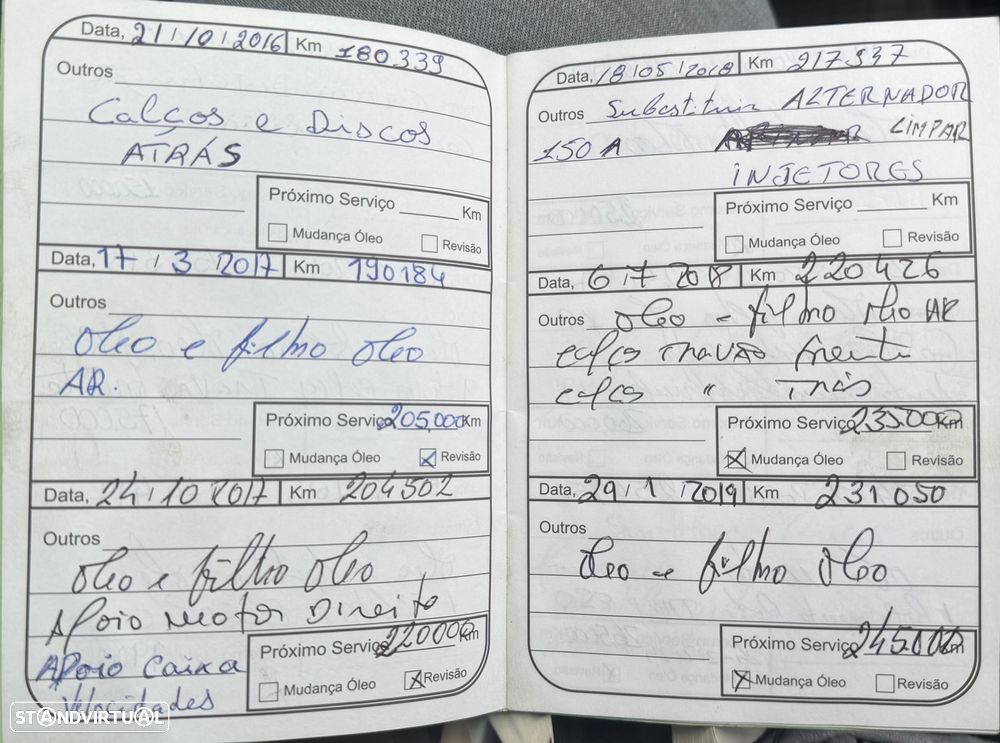 Data, 21 / 10 / 2016 Km 180.339
Outros
Calços e Discos
ATRÁS
Próximo Serviço Km
Mudança Óleo Revisão
Data, 17 / 3 2017 Km 190184
Outros
Oleo e filtro oleo
AR.
Próximo Serviço 205,000 Km
Mudança Óleo Revisão
Data, 24 / 10 2017 Km 204502
Outros
Oleo e filtro Oleo
Apoio Motor Direito
Próximo Serviço 220000 Km
Apoio Caixa
Mudança Óleo Revisão
Velocidades
Data, 18 / 05 / 2018 Km 217937
Outros Substituir ALTERNADOR
150 A LIMPAR
INJETORES
Próximo Serviço Km
Mudança Óleo Revisão
Data, 6 / 7 2018 Km 220426
Outros Oleo - filtro oleo AR
calços travão frente
calços " Trás
Próximo Serviço 235.000 Km
Mudança Óleo Revisão
Data, 29 / 1 / 2019 Km 231050
Outros
Oleo - filtro Oleo
Próximo Serviço 245.000 Km
Mudança Óleo Revisão
STANDVIRTUAL